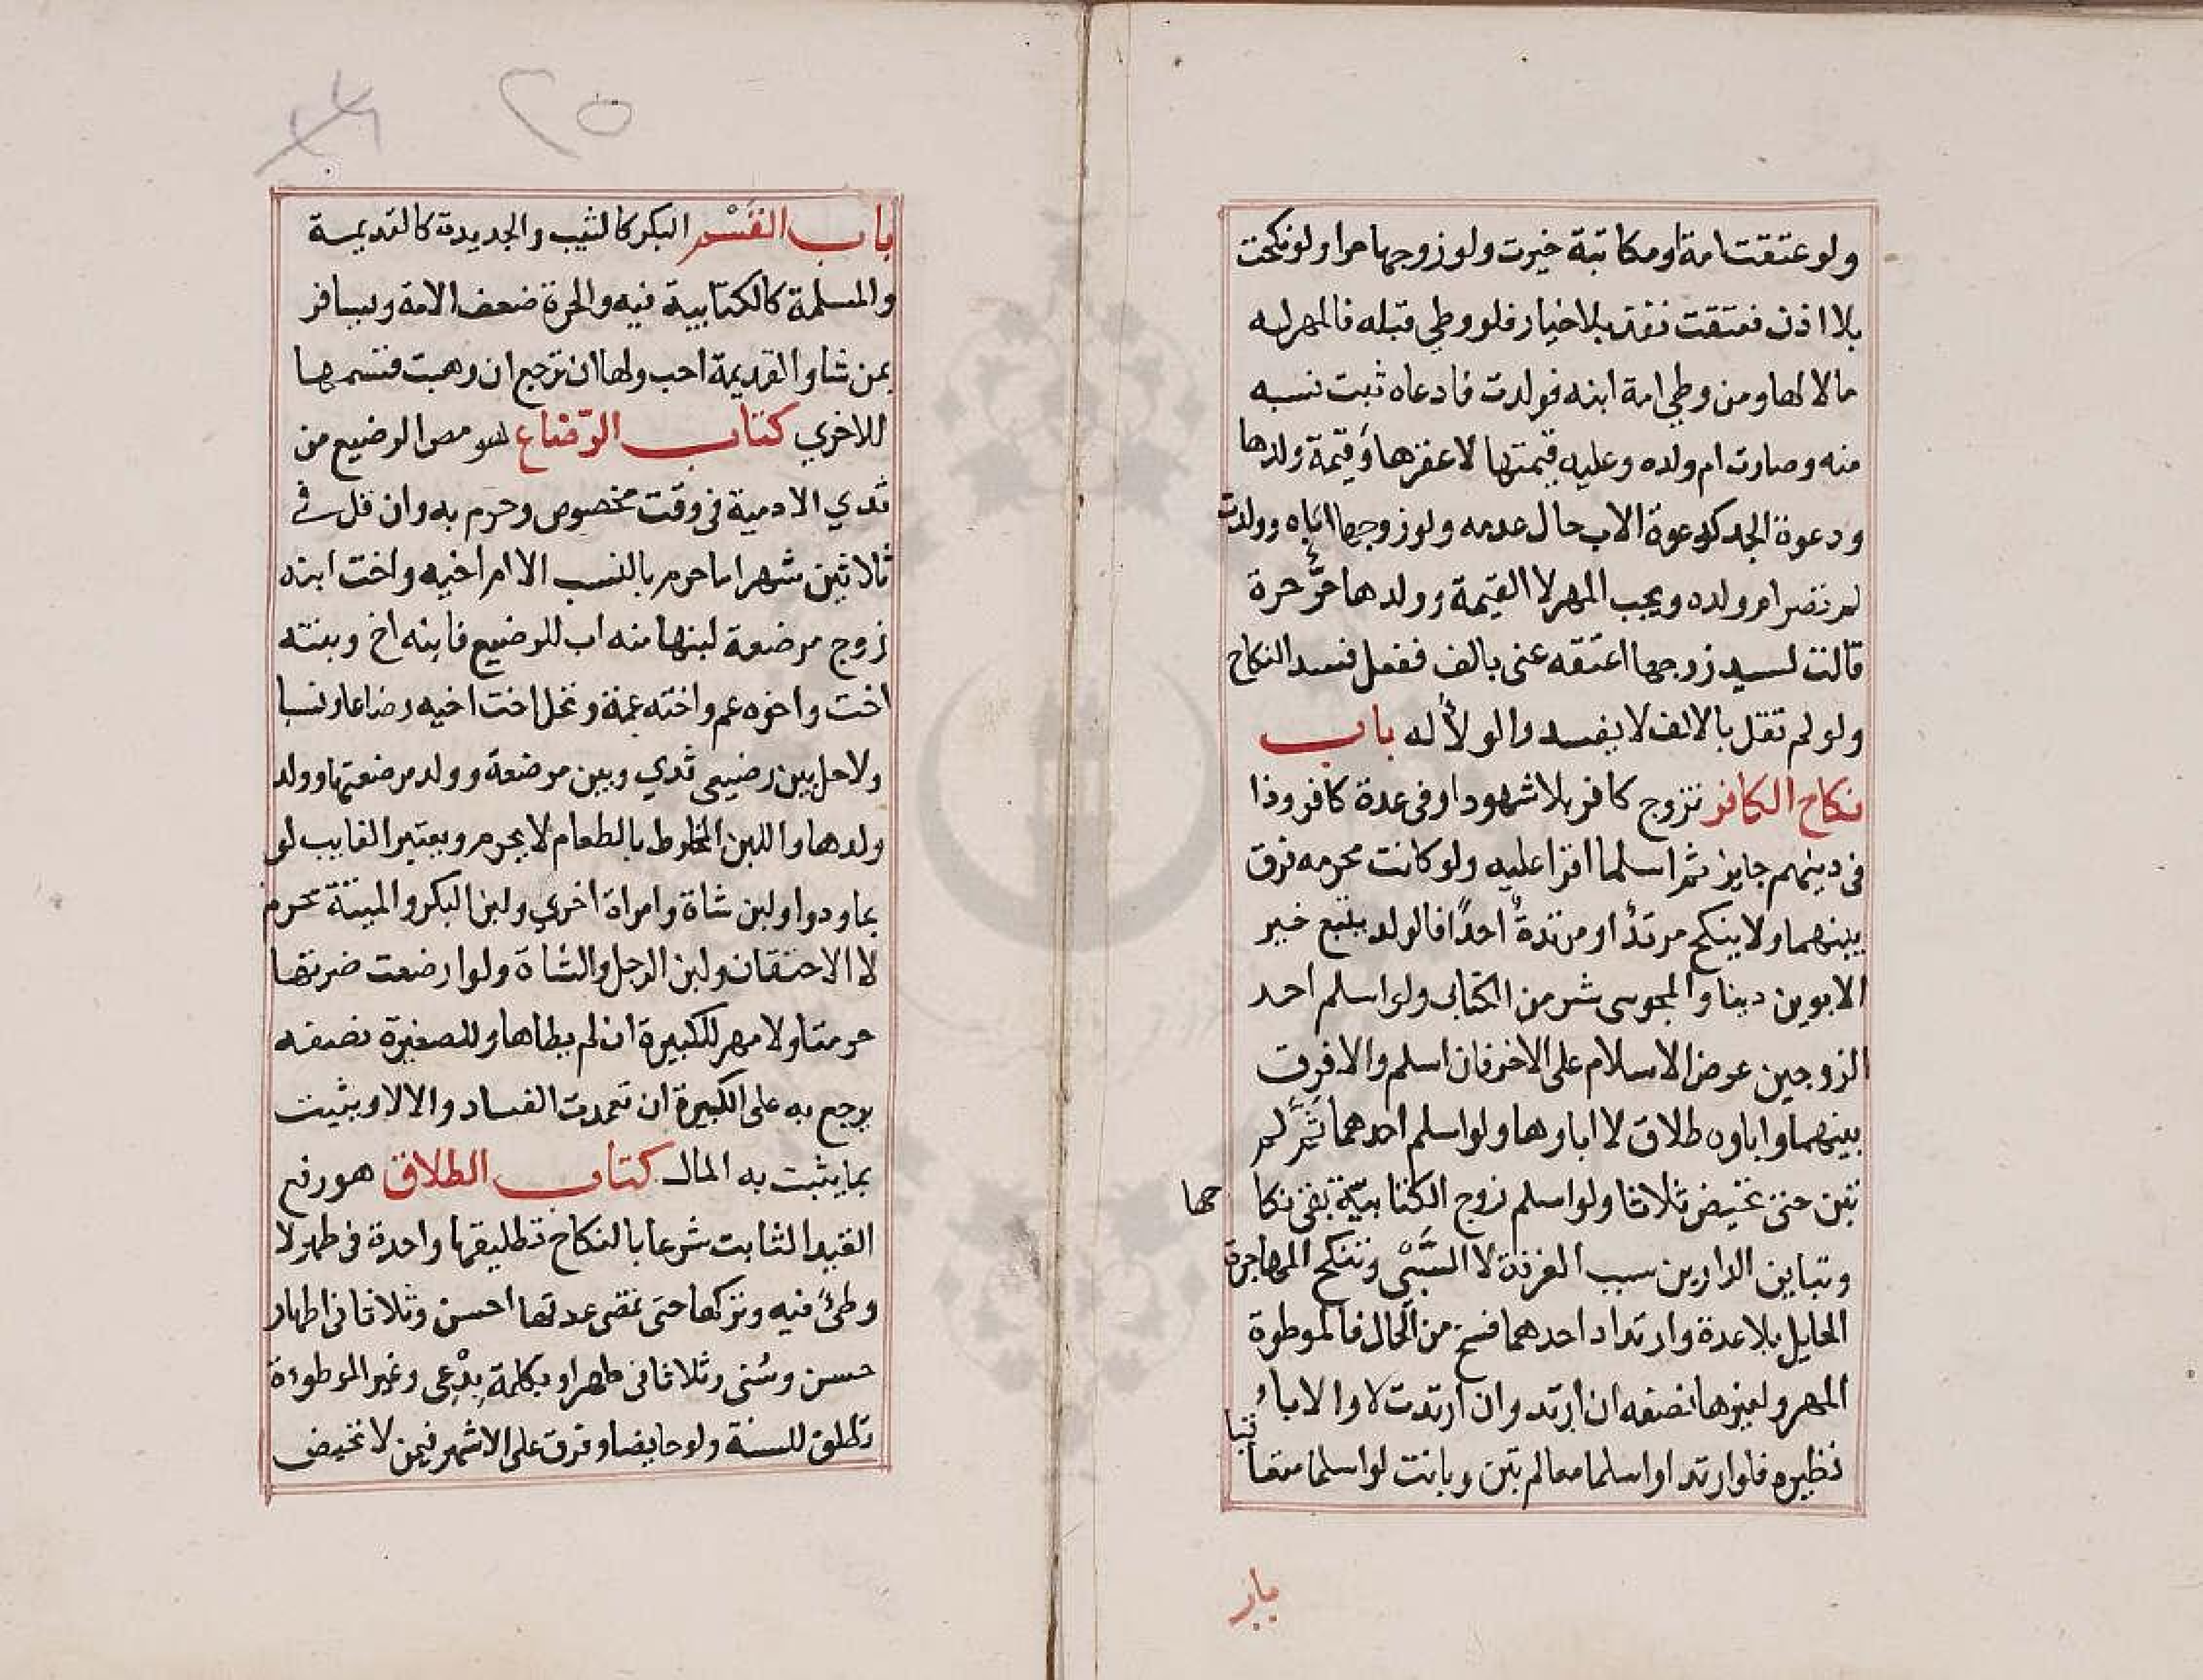 ولو عتقت امة او مكاتبة خيرت ولو زوجها حرا ولو نكحت
بلا اذن فعتقت نفذ بلا خيار فلو وطي قبله فالمهر له
مالا لها ومن وطي امة ابنه فولدت فادعاه ثبت نسبه
منه وصارت ام ولده وعليه قيمتها لا عقرها وقيمة ولدها
ودعوة الجد كدعوة الاب حال عدمه ولو زوجها اياه وولدت
لم تصر ام ولده ويجب المهر لا القيمة وولدها حر حرة
قالت لسيد زوجها اعتقه عني بالف ففعل فسد النكاح
ولو لم تقل بالالف لا يفسد والولأ له باب
نكاح الكافر تزوج كافر بلا شهود او في عدة كافر وذا
في دينهم جايز ثم اسلما اقرا عليه ولو كانت محرمه فرق
بينهما ولا ينكح مرتدٌ او مرتدةٌ احدًا فالولد يتبع خير
الابوين دينا والمجوسي شر من الكتابي ولو اسلم احد
الزوجين عرض الاسلام على الاخر فان اسلم والا فرق
بينهما واباوه طلاق لا اباوها ولو اسلم احدهما ثَمَّ لم
تبن حتى تحيض ثلاثا ولو اسلم زوج الكتابيّة بقي نكا حها
وتباين الدارين سبب الفرقة لا السَّبْي وتنكح المهاجرة
الحايل بلا عدة وارتداد احدهما فسخ من الحال فالموطوة
المهر ولغيرها نصفه ان ارتد وان ارتدت لا والاباء
نظيره فلو ارتدا او اسلما معا لم تبن وبانت لو اسلما متعا قبا
باب
٢٥
باب القَسْم البكر كالثيب والجديدة كالقديمة
والمسلمة كالكتابية فيه والحرة ضعف الامة ويسافر
بمن شا والقديمة احب ولها ان ترجع ان وهبت قسمها
للاخري كتاب الرّضاع هو مص الرضيع من
ثدي الادمية في وقت مخصوص وحرم به وان قل في
ثلاثين شهرا ما حرم بالنسب الا ام اخيه واخت ابنه
زوج مرضعة لبنها منه اب للرضيع فابنه اخ وبنته
اخت واخوه عم واخته عمة وتحل اخت اخيه رضاعا ونسبا
ولا حل بين رضيعي ثدي وبين مرضعة وولد مرضعتها وولد
ولدها واللبن المخلوط بالطعام لا يحرم ويعتبر الغايب لو
بماو دوا ولبن شاة وامراة اخري ولبن البكر والميتة محرم
لا الاحتقان ولبن الرجل والشاة ولو ارضعت ضرتها
حرمتا ولا مهر للكبيرة ان لم يطاها وللصغيرة نصفه
يرجع به على الكبيرة ان تعمدت الفساد والا لا ويثبت
بما يثبت به المال كتاب الطلاق هو رفع
القيد الثابت شرعا بالنكاح تطليقها واحدة في طهر لا
وطئ فيه وتركها حتى تمضي عدتها احسن وثلاثا في اطهار
حسن وسُني وثلاثا في طهر او بكلمة بِدْعي وغير الموطوءة
تطلق للسنة ولو حايضا وفرق على الاشهر فيمن لا تحيض